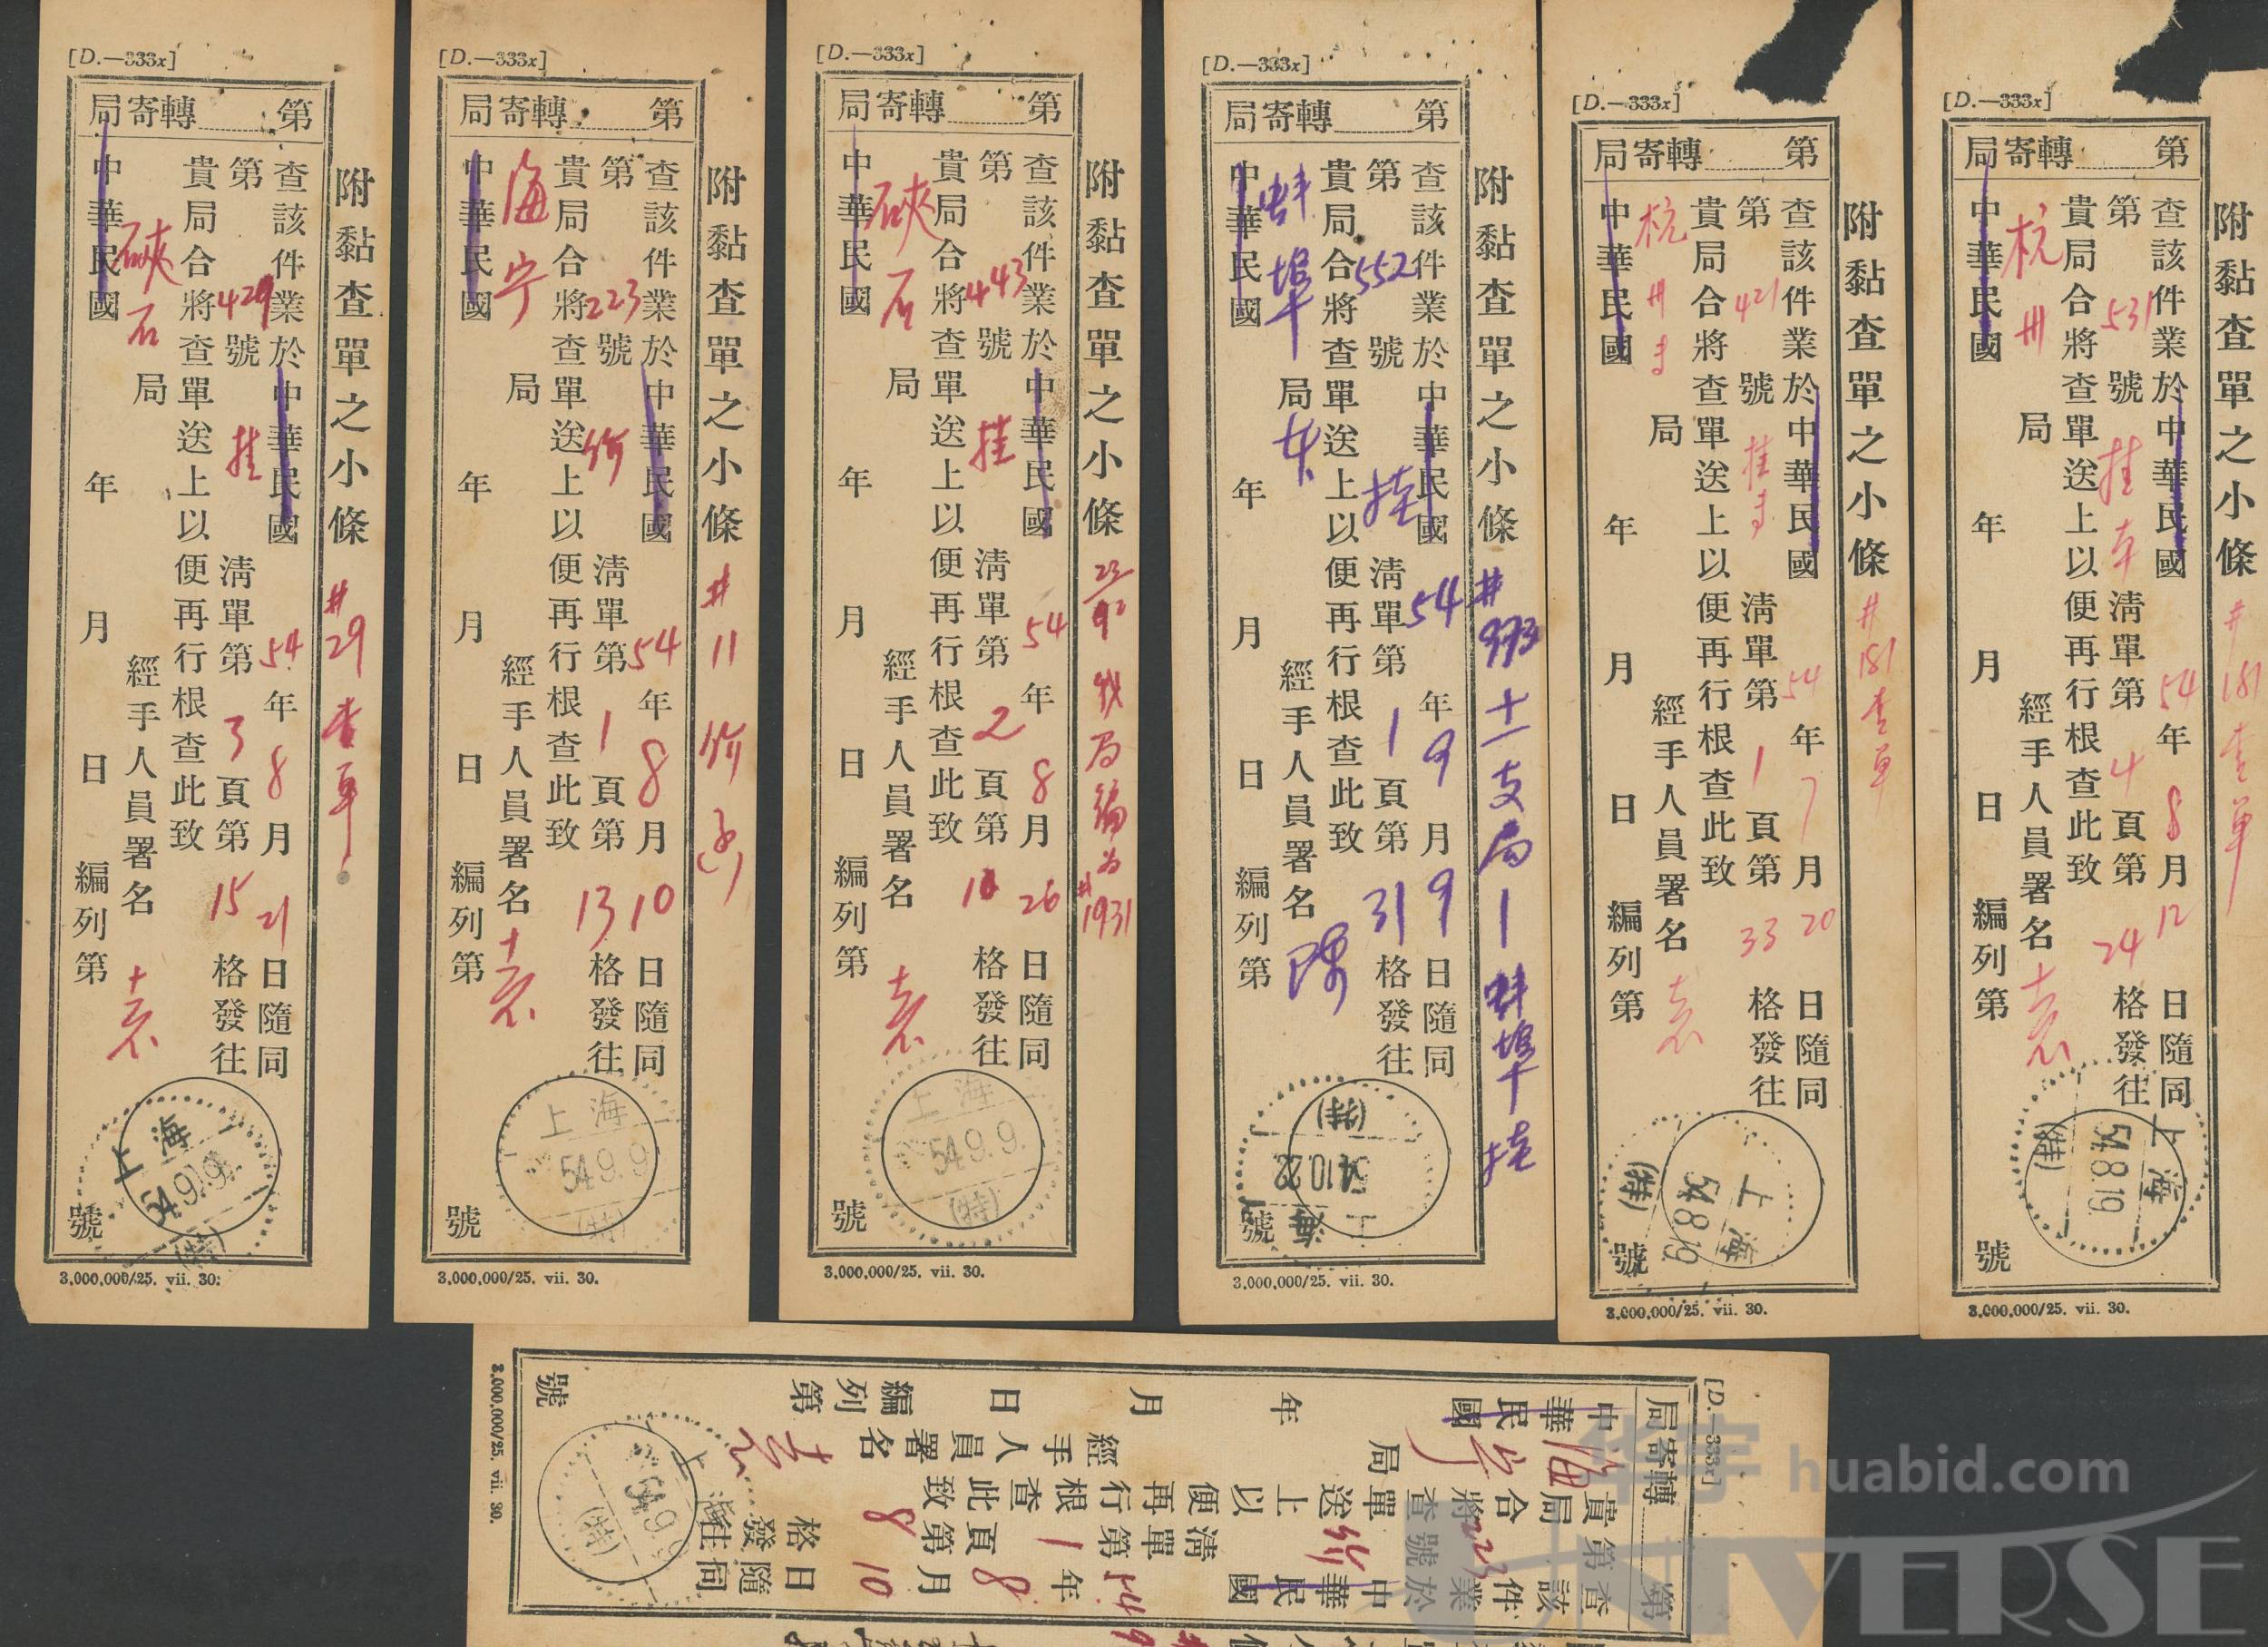 [D.—333x]
第轉寄局
附黏查單之小條 #29查單
查該件業於中華民國54年8月21日隨同
第429號掛 清單第3頁第15格發往
貴局合將查單送上以便再行根查此致
硤石局 經手人員署名 袁
中華民國 年 月 日 編列第 號
上海 54.9.9. (特)
3,000,000/25. vii. 30.
[D.—333x]
第轉寄局
附黏查單之小條 #11
查該件業於中華民國54年8月10日隨同
第223號 清單第1頁第13格發往
貴局合將查單送上以便再行根查此致
海宁局 經手人員署名 袁
中華民國 年 月 日 編列第 號
上海 54.9.9. (特)
3,000,000/25. vii. 30.
[D.—333x]
第轉寄局
附黏查單之小條 局編为#1931
查該件業於中華民國54年8月26日隨同
第443號掛 清單第2頁第格發往
貴局合將查單送上以便再行根查此致
硤石局 經手人員署名 袁
中華民國 年 月 日 編列第 號
上海 54.9.9. (特)
3,000,000/25. vii. 30.
[D.—333x]
第轉寄局
附黏查單之小條 #993 十一支局 1 蚌埠 挂
查該件業於中華民國54年9月9日隨同
第552號挂 清單第1頁第31格發往
貴局合將查單送上以便再行根查此致
蚌埠局 經手人員署名 陈
中華民國 年 月 日 編列第 號
上海 54.10.22 (特)
3,000,000/25. vii. 30.
[D.—333x]
第轉寄局
附黏查單之小條 #181查单
查該件業於中華民國54年7月20日隨同
第421號挂 清單第1頁第33格發往
貴局合將查單送上以便再行根查此致
杭州局 經手人員署名 袁
中華民國 年 月 日 編列第 號
上海 54.8.19 (特)
3,000,000/25. vii. 30.
[D.—333x]
第轉寄局
附黏查單之小條 #181查單
查該件業於中華民國54年8月12日隨同
第531號挂 清單第4頁第24格發往
貴局合將查單送上以便再行根查此致
杭州局 經手人員署名 袁
中華民國 年 月 日 編列第 號
上海 54.8.19 (特)
3,000,000/25. vii. 30.
[D.—333x]
第轉寄局
查該件業於中華民國54年8月10日隨同
第223號 清單第1頁第8格發往
貴局合將查單送上以便再行根查此致
海宁局 經手人員署名 袁
中華民國 年 月 日 編列第 號
上海 54.9.9 (特)
3,000,000/25. vii. 30.
华宇 huabid.com
UNIVERSE